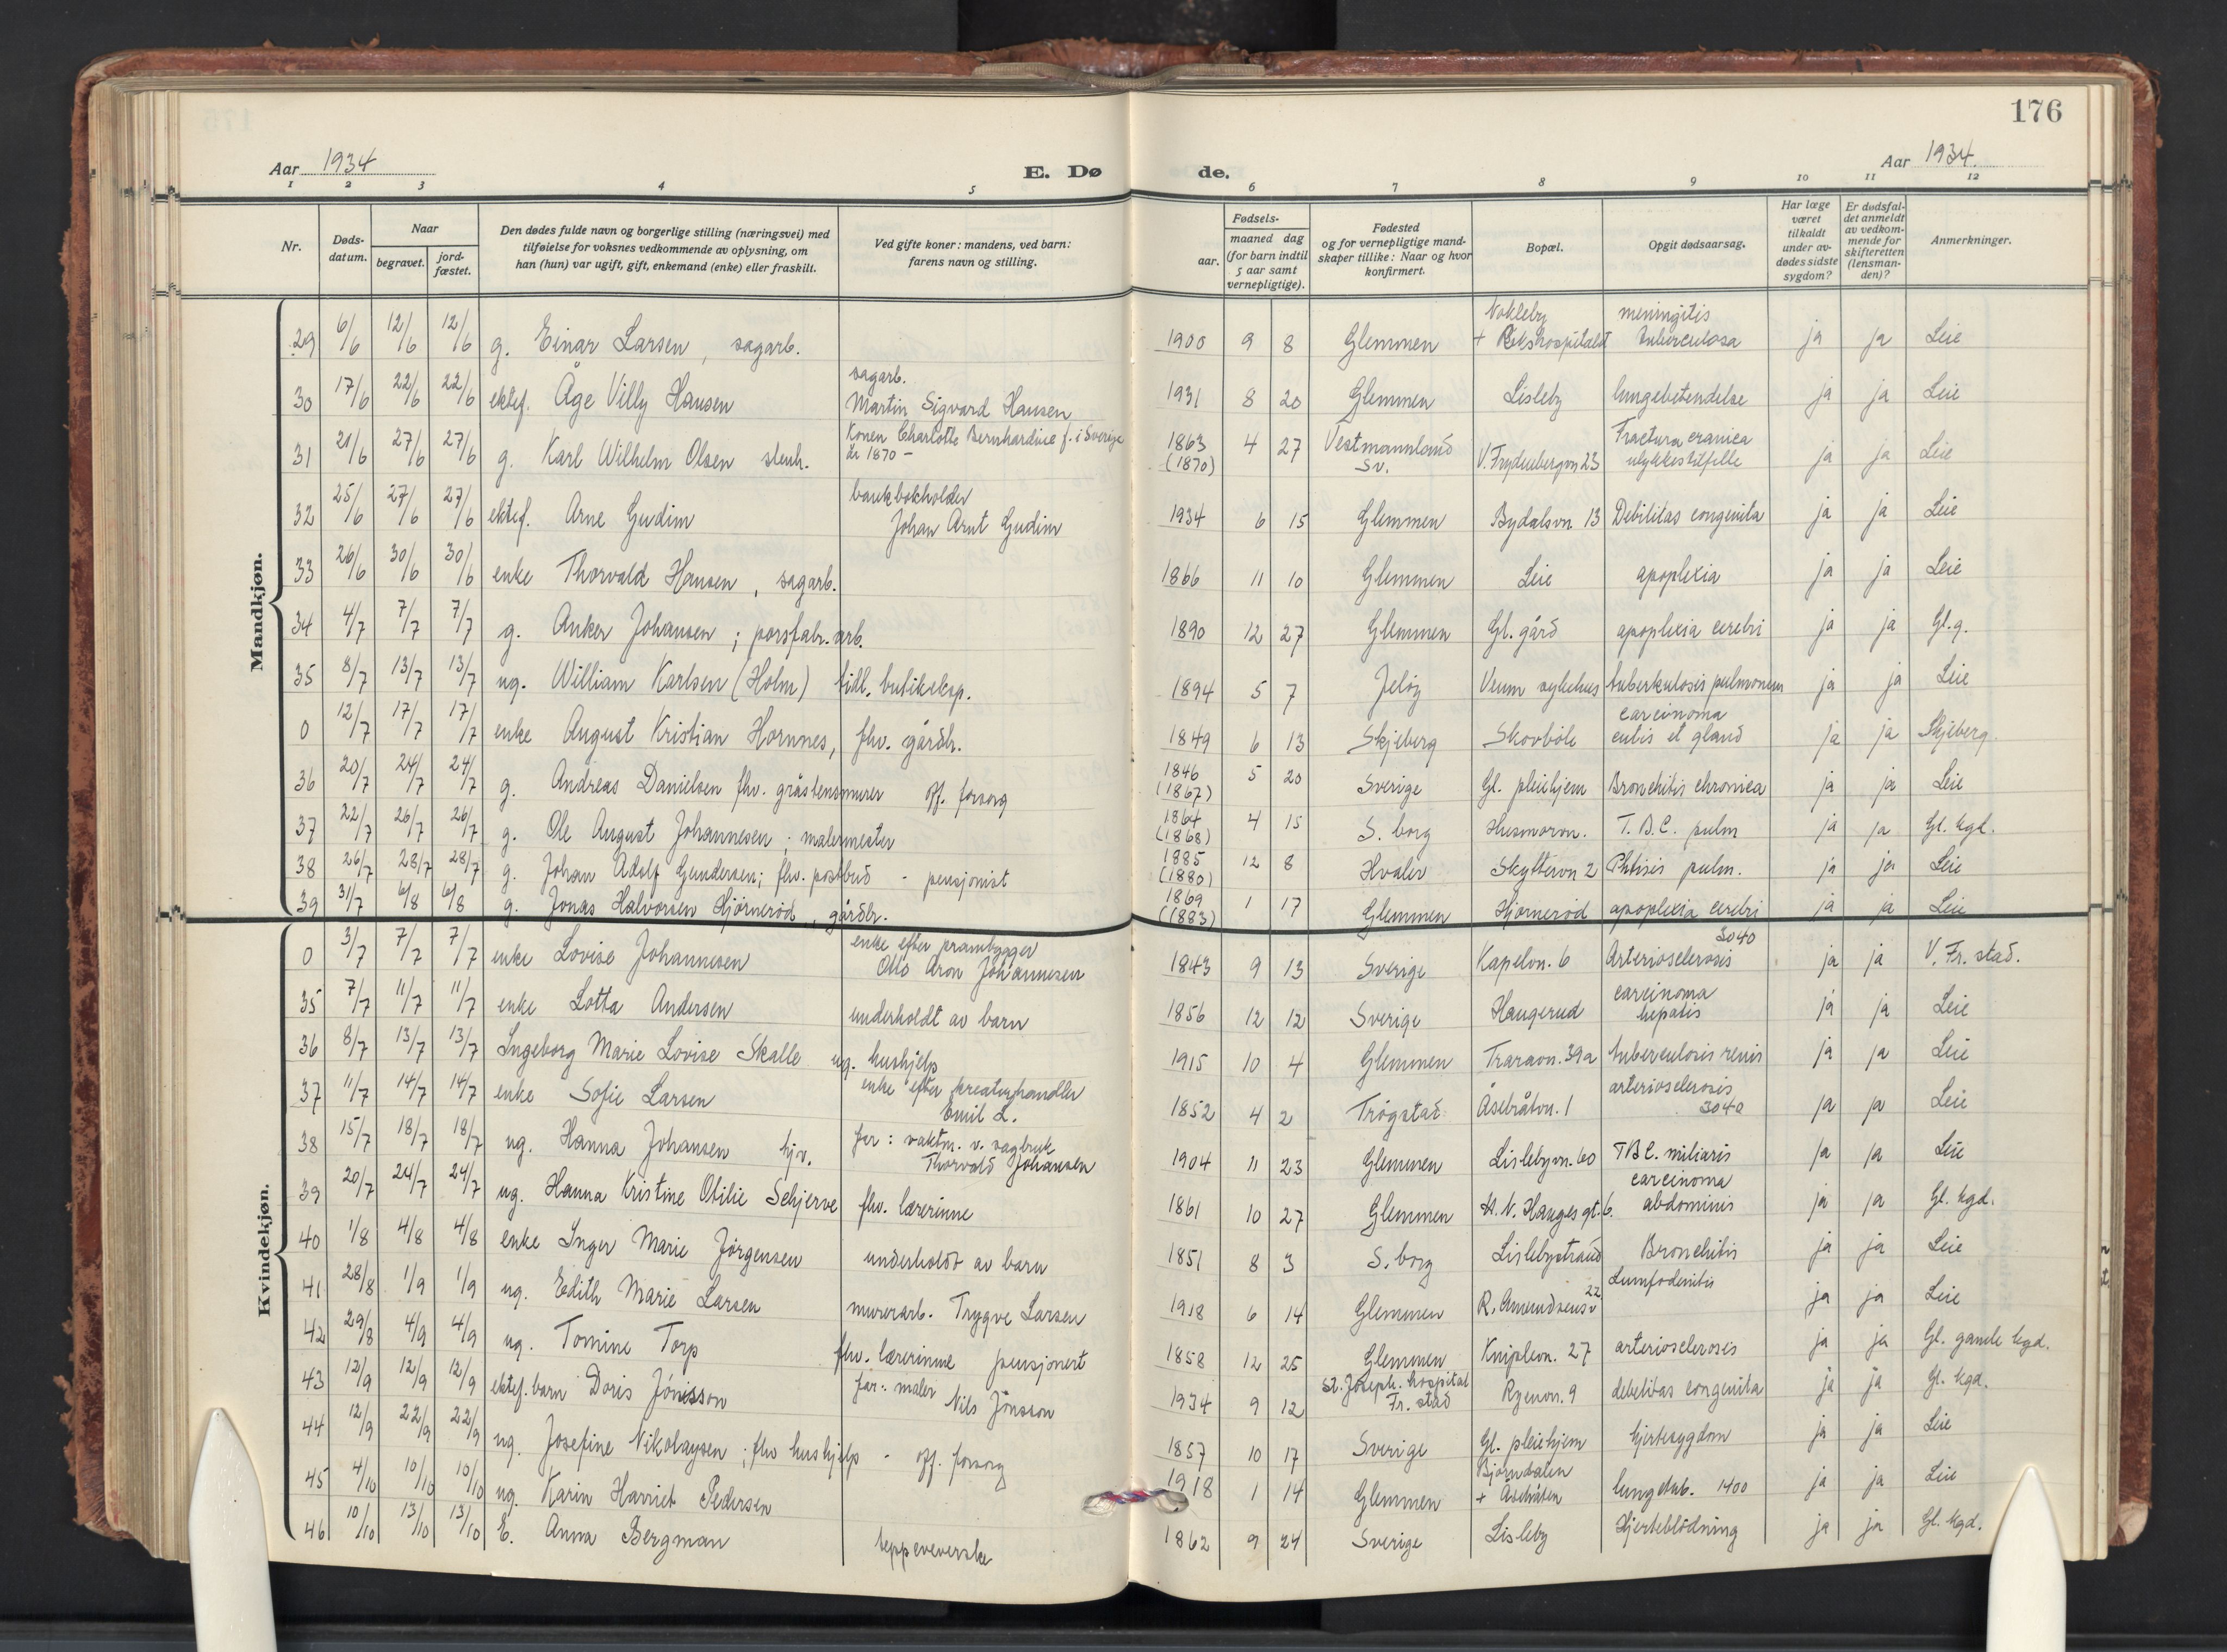 176
Aar 1934 E. Dø de. Aar 1934.
1 2 3 4 5 6 7 8 9 10 11 12
Nr. Døds-datum. Naar begravet. jord-fæstet. Den dødes fulde navn og borgerlige stilling (næringsvei) med tilføielse for voksnes vedkommende av oplysning, om han (hun) var ugift, gift, enkemand (enke) eller fraskilt. Ved gifte koner: mandens, ved barn: farens navn og stilling. Fødsels- aar. maaned dag (for barn indtil 5 aar samt vernepligtige). Fødested og for vernepligtige mandskaper tillike: Naar og hvor konfirmert. Bopæl. Opgit dødsaarsag. Har læge været tilkaldt under avdødes sidste sygdom? Er dødsfaldet anmeldt av vedkommende for skifteretten (lensmanden)? Anmerkninger.
Mandkjøn.
29 6/6 12/6 12/6 g. Einar Larsen, sagarb. 1900 9 8 Glemmen Nokleby + Rikshospitalet meningitis tuberculosa ja ja Leie
30 17/6 22/6 22/6 ektef. Åge Villy Hansen sagarb. Martin Sigvard Hansen 1931 8 20 Glemmen Lisleby lungebetendelse ja ja Leie
31 21/6 27/6 27/6 g. Karl Wilhelm Olsen stenh. Konen Charlotte Bernhardine f. i Sverige år 1870 - 1863 (1870) 4 27 Vestmannland Sv. V. Frydenbergvn 23 Fractura cranica ulykkestilfelle ja ja Leie
32 25/6 27/6 27/6 ektef. Arne Gudim bankbokholder Johan Arnt Gudim 1934 6 15 Glemmen Bydalsvn. 13 Debilitas congenita ja ja Leie
33 26/6 30/6 30/6 enke Thorvald Hansen, sagarb. 1866 11 10 Glemmen Leie apoplexia ja ja Leie
34 4/7 7/7 7/7 g. Anker Johansen; porsfabr. arb. 1890 12 27 Glemmen Gl. gård apoplexia cerebri ja ja Gl. g.
35 8/7 13/7 13/7 ug. William Karlsen (Holm) tidl. butikeksp. 1894 5 7 Jeløy Veum sykehus tuberkulosis pulmonum ja ja Leie
0 12/7 17/7 17/7 enke August Kristian Hornnes, fhv. gårdbr. 1849 6 13 Skjeberg Skovbøle carcinoma cutis et gland ja ja Skjeberg.
36 20/7 24/7 24/7 g. Andreas Danielsen fhv. gråstensmurer off. forsorg 1846 (1867) 5 20 Sverige Gl. pleiehjem Bronchitis chronica ja ja Leie
37 22/7 26/7 26/7 g. Ole August Johannesen; malermester 1864 (1868) 4 15 S. borg Husmorvn. T.B.C. pulm ja ja Gl. kgd.
38 26/7 28/7 28/7 g. Johan Adolf Gundersen; fhv. postbud - pensjonist 1885 (1880) 12 8 Hvaler Skyttervn 2 Phtisis pulm. ja ja Leie
39 31/7 6/8 6/8 g. Jonas Halvorsen Hjørnerød, gårdbr. 1869 (1883) 1 17 Glemmen Hjørnerød apoplexia cerebri ja ja Leie
Kvindekjøn.
0 3/7 7/7 7/7 enke Lovise Johannesen enke efter prambygger Otto Aron Johannesen 1843 9 13 Sverige Kapelvn. 6 Arteriosclerosis 3040 ja ja V. Fr. stad.
35 7/7 11/7 11/7 enke Lotta Andersen underholdt av barn 1856 12 12 Sverige Haugerud carcinoma hepatis ja ja Leie
36 8/7 13/7 13/7 Ingeborg Marie Lovise Skalle ug. hushjelp 1915 10 4 Glemmen Traravn. 39a tuberculosis renis ja ja Leie
37 11/7 14/7 14/7 enke Sofie Larsen enke efter kreaturhandler Emil L. 1852 4 2 Trøgstad Åsebråtvn. 1 arteriosclerosis 3040 ja ja Leie
38 15/7 18/7 18/7 ug. Hanna Johansen hjv. far: vaktm. v. sagbruk Thorvald Johansen 1904 11 23 Glemmen Lislebyvn. 60 TBC. miliaris ja ja Leie
39 20/7 24/7 24/7 ug. Hanna Kristine Otilie Schjerve fhv. lærerinne 1861 10 27 Glemmen H. N. Hauges gt. 6. carcinoma abdominis ja ja Gl. kgd.
40 1/8 4/8 4/8 enke Inger Marie Jørgensen underholdt av barn 1851 8 3 S. borg Lislebystrand Bronchitis ja ja Leie
41 28/8 1/9 1/9 ug. Edith Marie Larsen murerarb. Trygve Larsen 1918 6 14 Glemmen R. Amundsensv 22 Lumfodenitis ja ja Leie
42 29/8 4/9 4/9 ug. Tomine Torp fhv. lærerinne pensjonert 1858 12 25 Glemmen Kniplevn. 27 arteriosclerosis ja ja Gl. gamle kgd.
43 12/9 12/9 12/9 ektef. barn Doris Jönsson far: maler Nils Jönsson 1934 9 12 St. Joseph. hospital Fr. stad Ryenvn. 9 debelitas congenita ja ja Gl. kgd.
44 12/9 22/9 22/9 ug. Josefine Nikolaysen; fhv hushjelp - off. forsorg 1857 10 17 Sverige Gl. pleiehjem hjertesygdom ja ja Leie
45 4/10 10/10 10/10 ug. Karin Harriet Pedersen 1918 1 14 Glemmen Bjørndalen + Åsebråten lungetub. 1400 ja ja Leie
46 10/10 13/10 13/10 E. Anna Bergman teppeveverske 1862 9 24 Sverige Lisleby Hjerteblødning ja ja Gl. kgd.